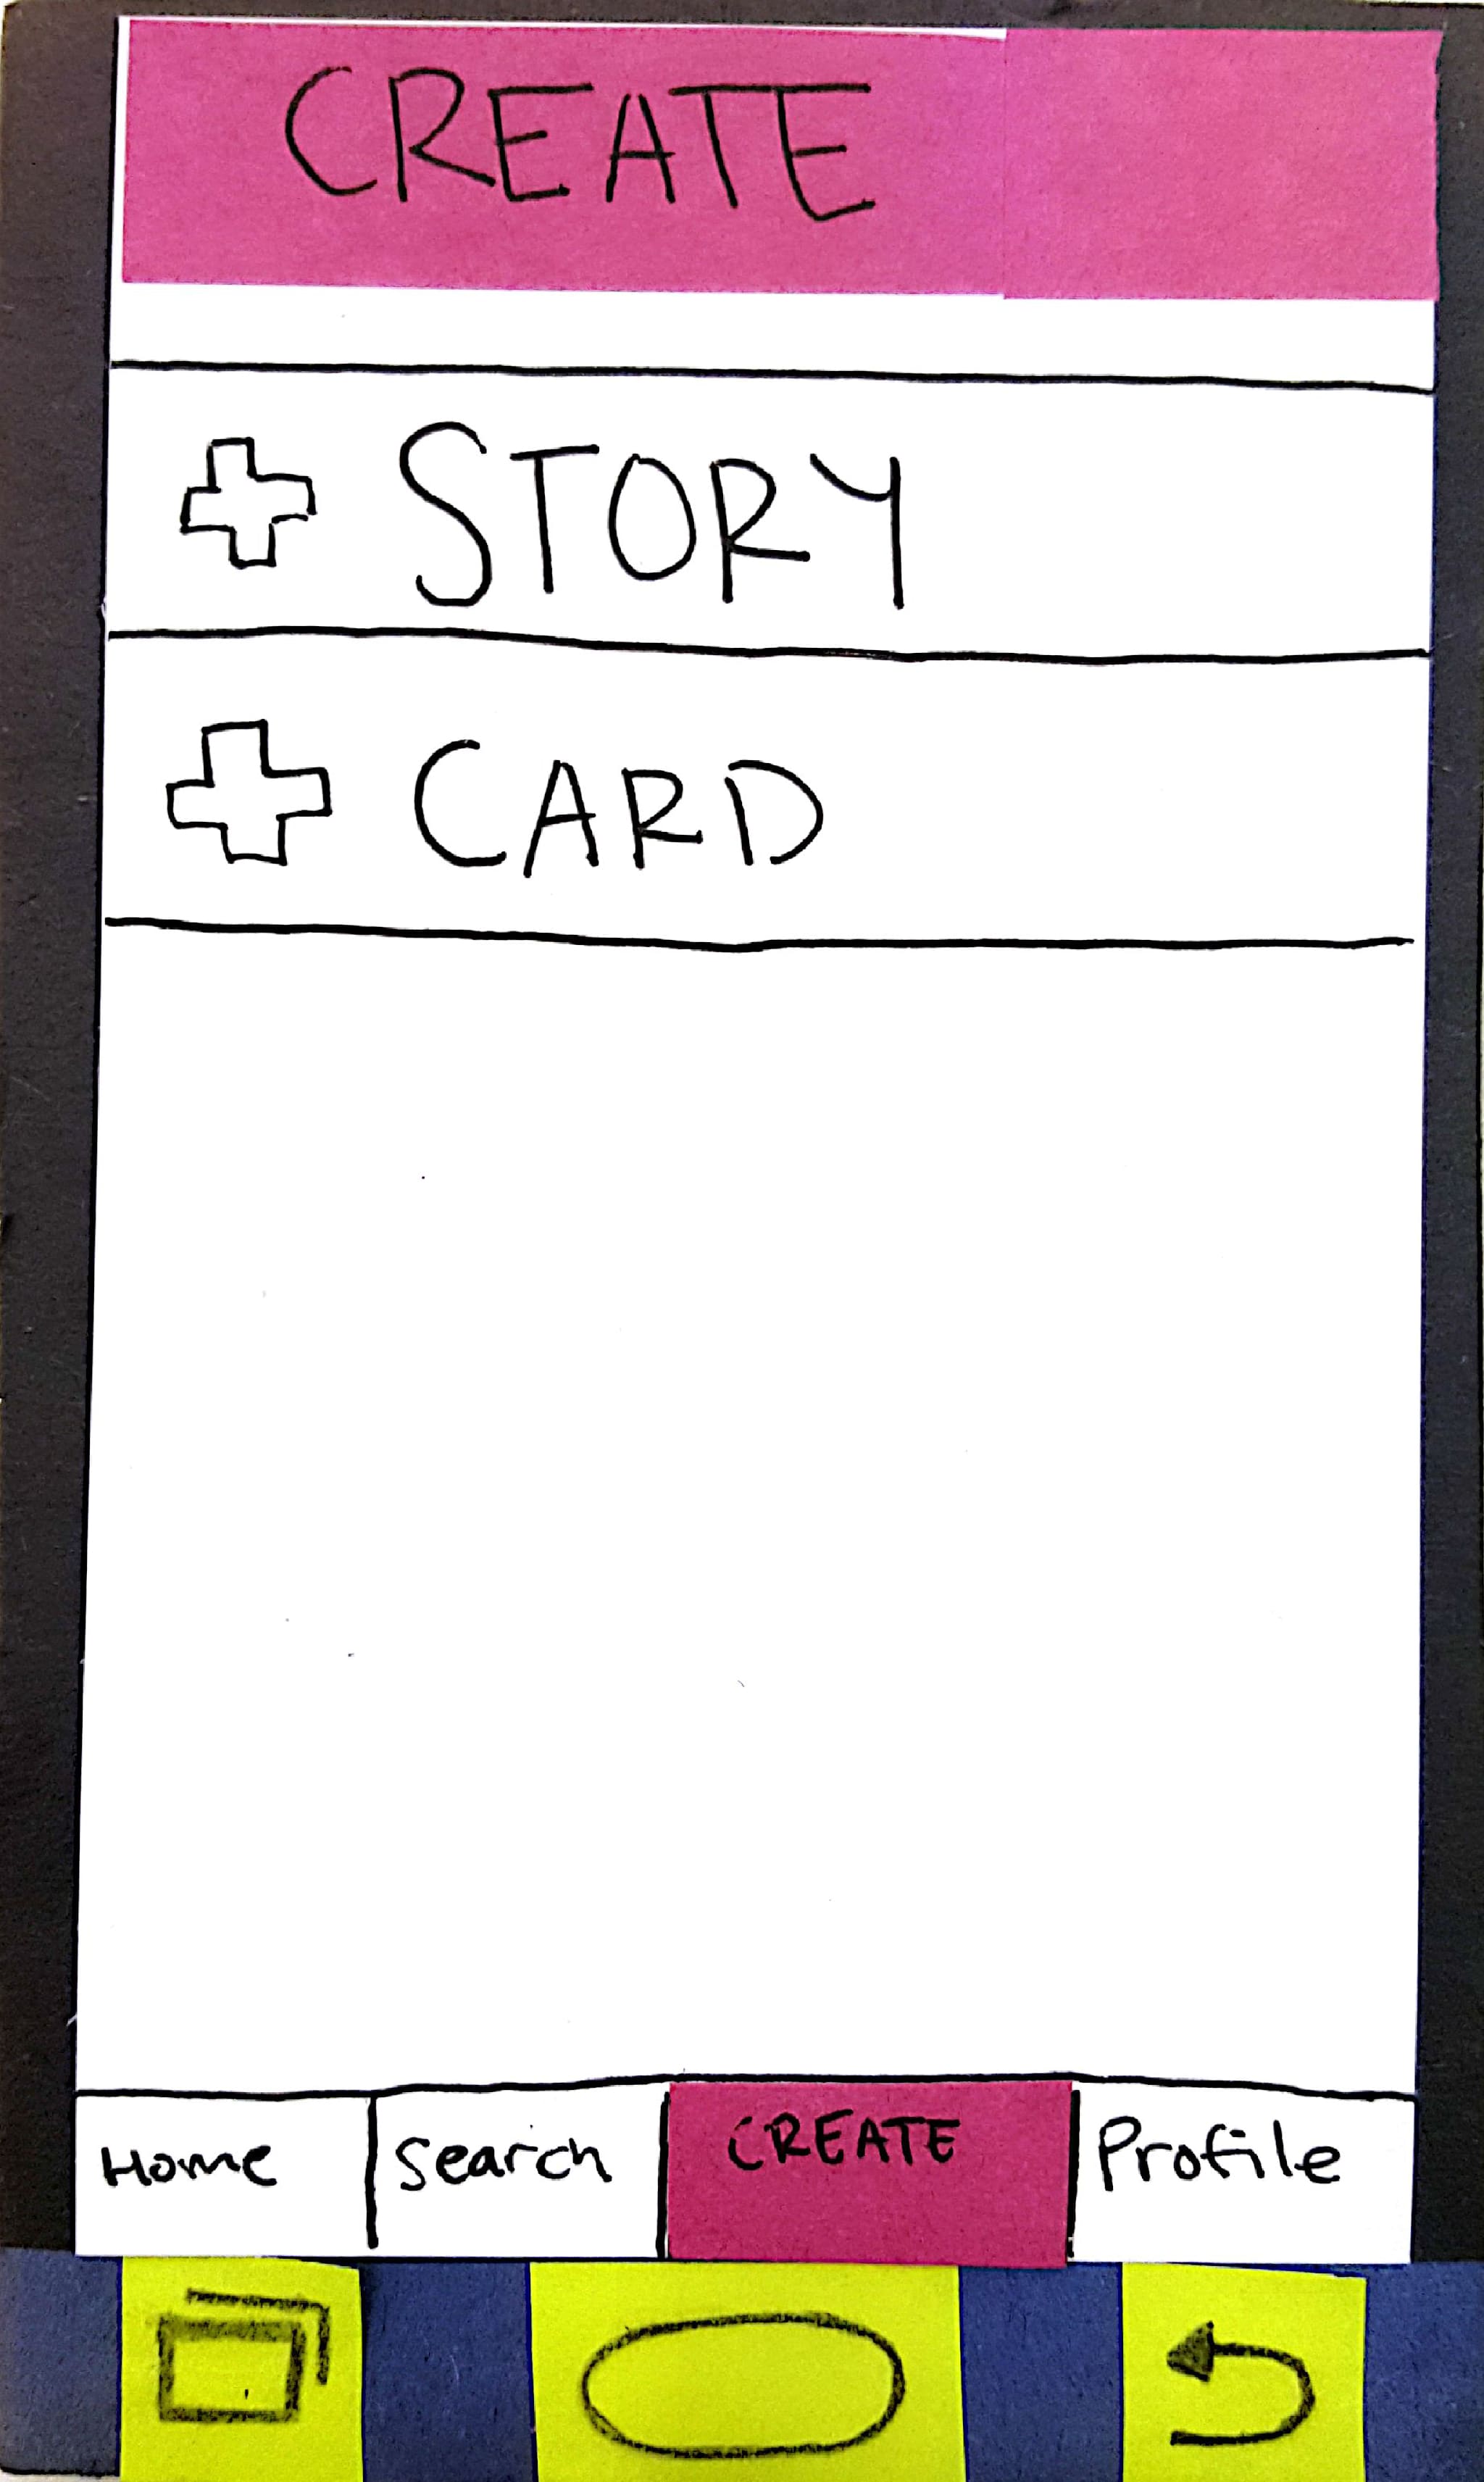 CREATE
STORY
CARD
Home Search CREATE Profile